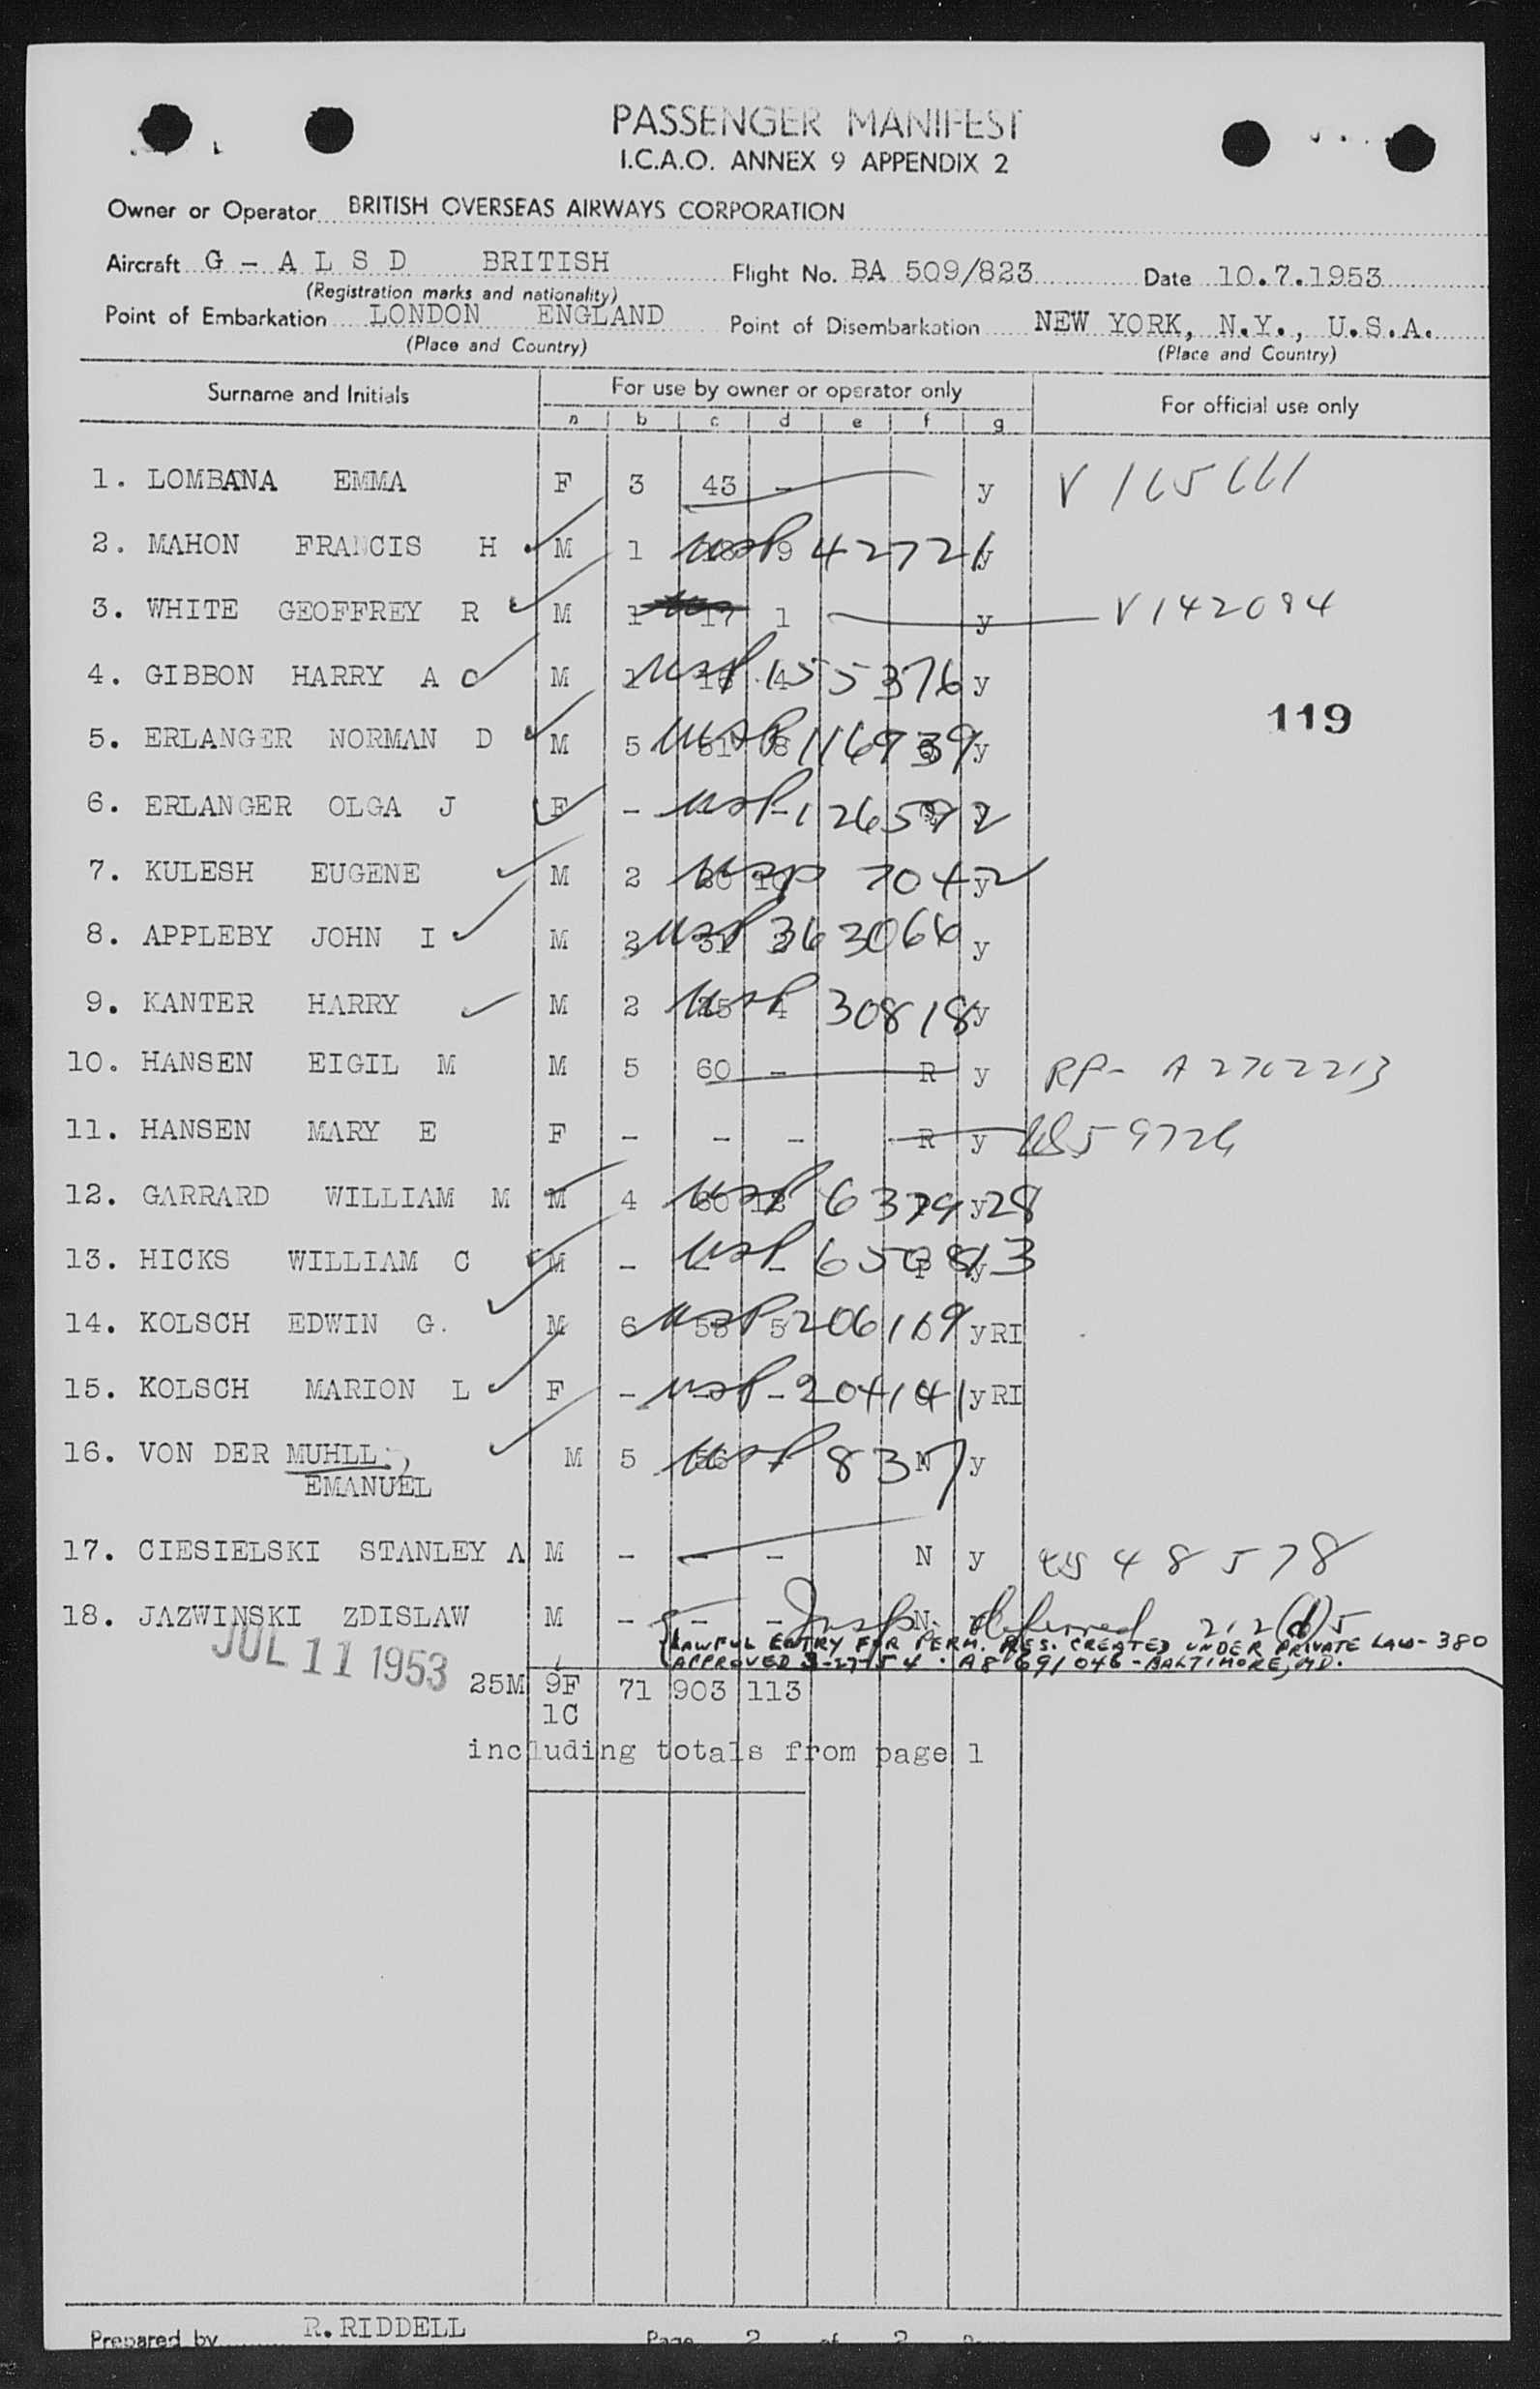 PASSENGER MANIFEST
I.C.A.O. ANNEX 9 APPENDIX 2
Owner or Operator BRITISH OVERSEAS AIRWAYS CORPORATION
Aircraft G - A L S D BRITISH Flight No. BA 509/823 Date 10.7.1953
(Registration marks and nationality)
Point of Embarkation LONDON ENGLAND Point of Disembarkation NEW YORK, N.Y., U.S.A.
(Place and Country) (Place and Country)
Surname and Initials For use by owner or operator only For official use only
a b c d e f g
1. LOMBANA EMMA F 3 43 - y V 165661
2. MAHON FRANCIS H M 1 USP 9 42721 y
3. WHITE GEOFFREY R M 1 17 1 y V142094
4. GIBBON HARRY A C M 1 16 4 USP 155376 y
119
5. ERLANGER NORMAN D M 5 51 8 USP 116939 y
6. ERLANGER OLGA J F - USP - 126592 y
7. KULESH EUGENE M 2 10 USP 7042 y
8. APPLEBY JOHN I M 2 31 USP 363066 y
9. KANTER HARRY M 2 4 USP 30818 y
10. HANSEN EIGIL M M 5 60 - R y RP- A2702213
11. HANSEN MARY E F - - - R y 859726
12. GARRARD WILLIAM M M 4 60 12 USP 637928 y
13. HICKS WILLIAM C M - - - USP 650813 y
14. KOLSCH EDWIN G. M 6 5 USP 206119 y RI
15. KOLSCH MARION L F - - - USP 204141 y RI
16. VON DER MUHLL, M 5 56 - USP 837 N y
EMANUEL
17. CIESIELSKI STANLEY A M - - - N y 48578
18. JAZWINSKI ZDISLAW M - - - N y Insp. deferred 212(d)5
LAWFUL ENTRY FOR PERM. RES. CREATED UNDER PRIVATE LAW-380
APPROVED 3-27-54. A8 691 046 - BALTIMORE, MD.
JUL 11 1953
25M 9F 71 903 113
1C
including totals from page 1
Prepared by R. RIDDELL Page 2 of 2